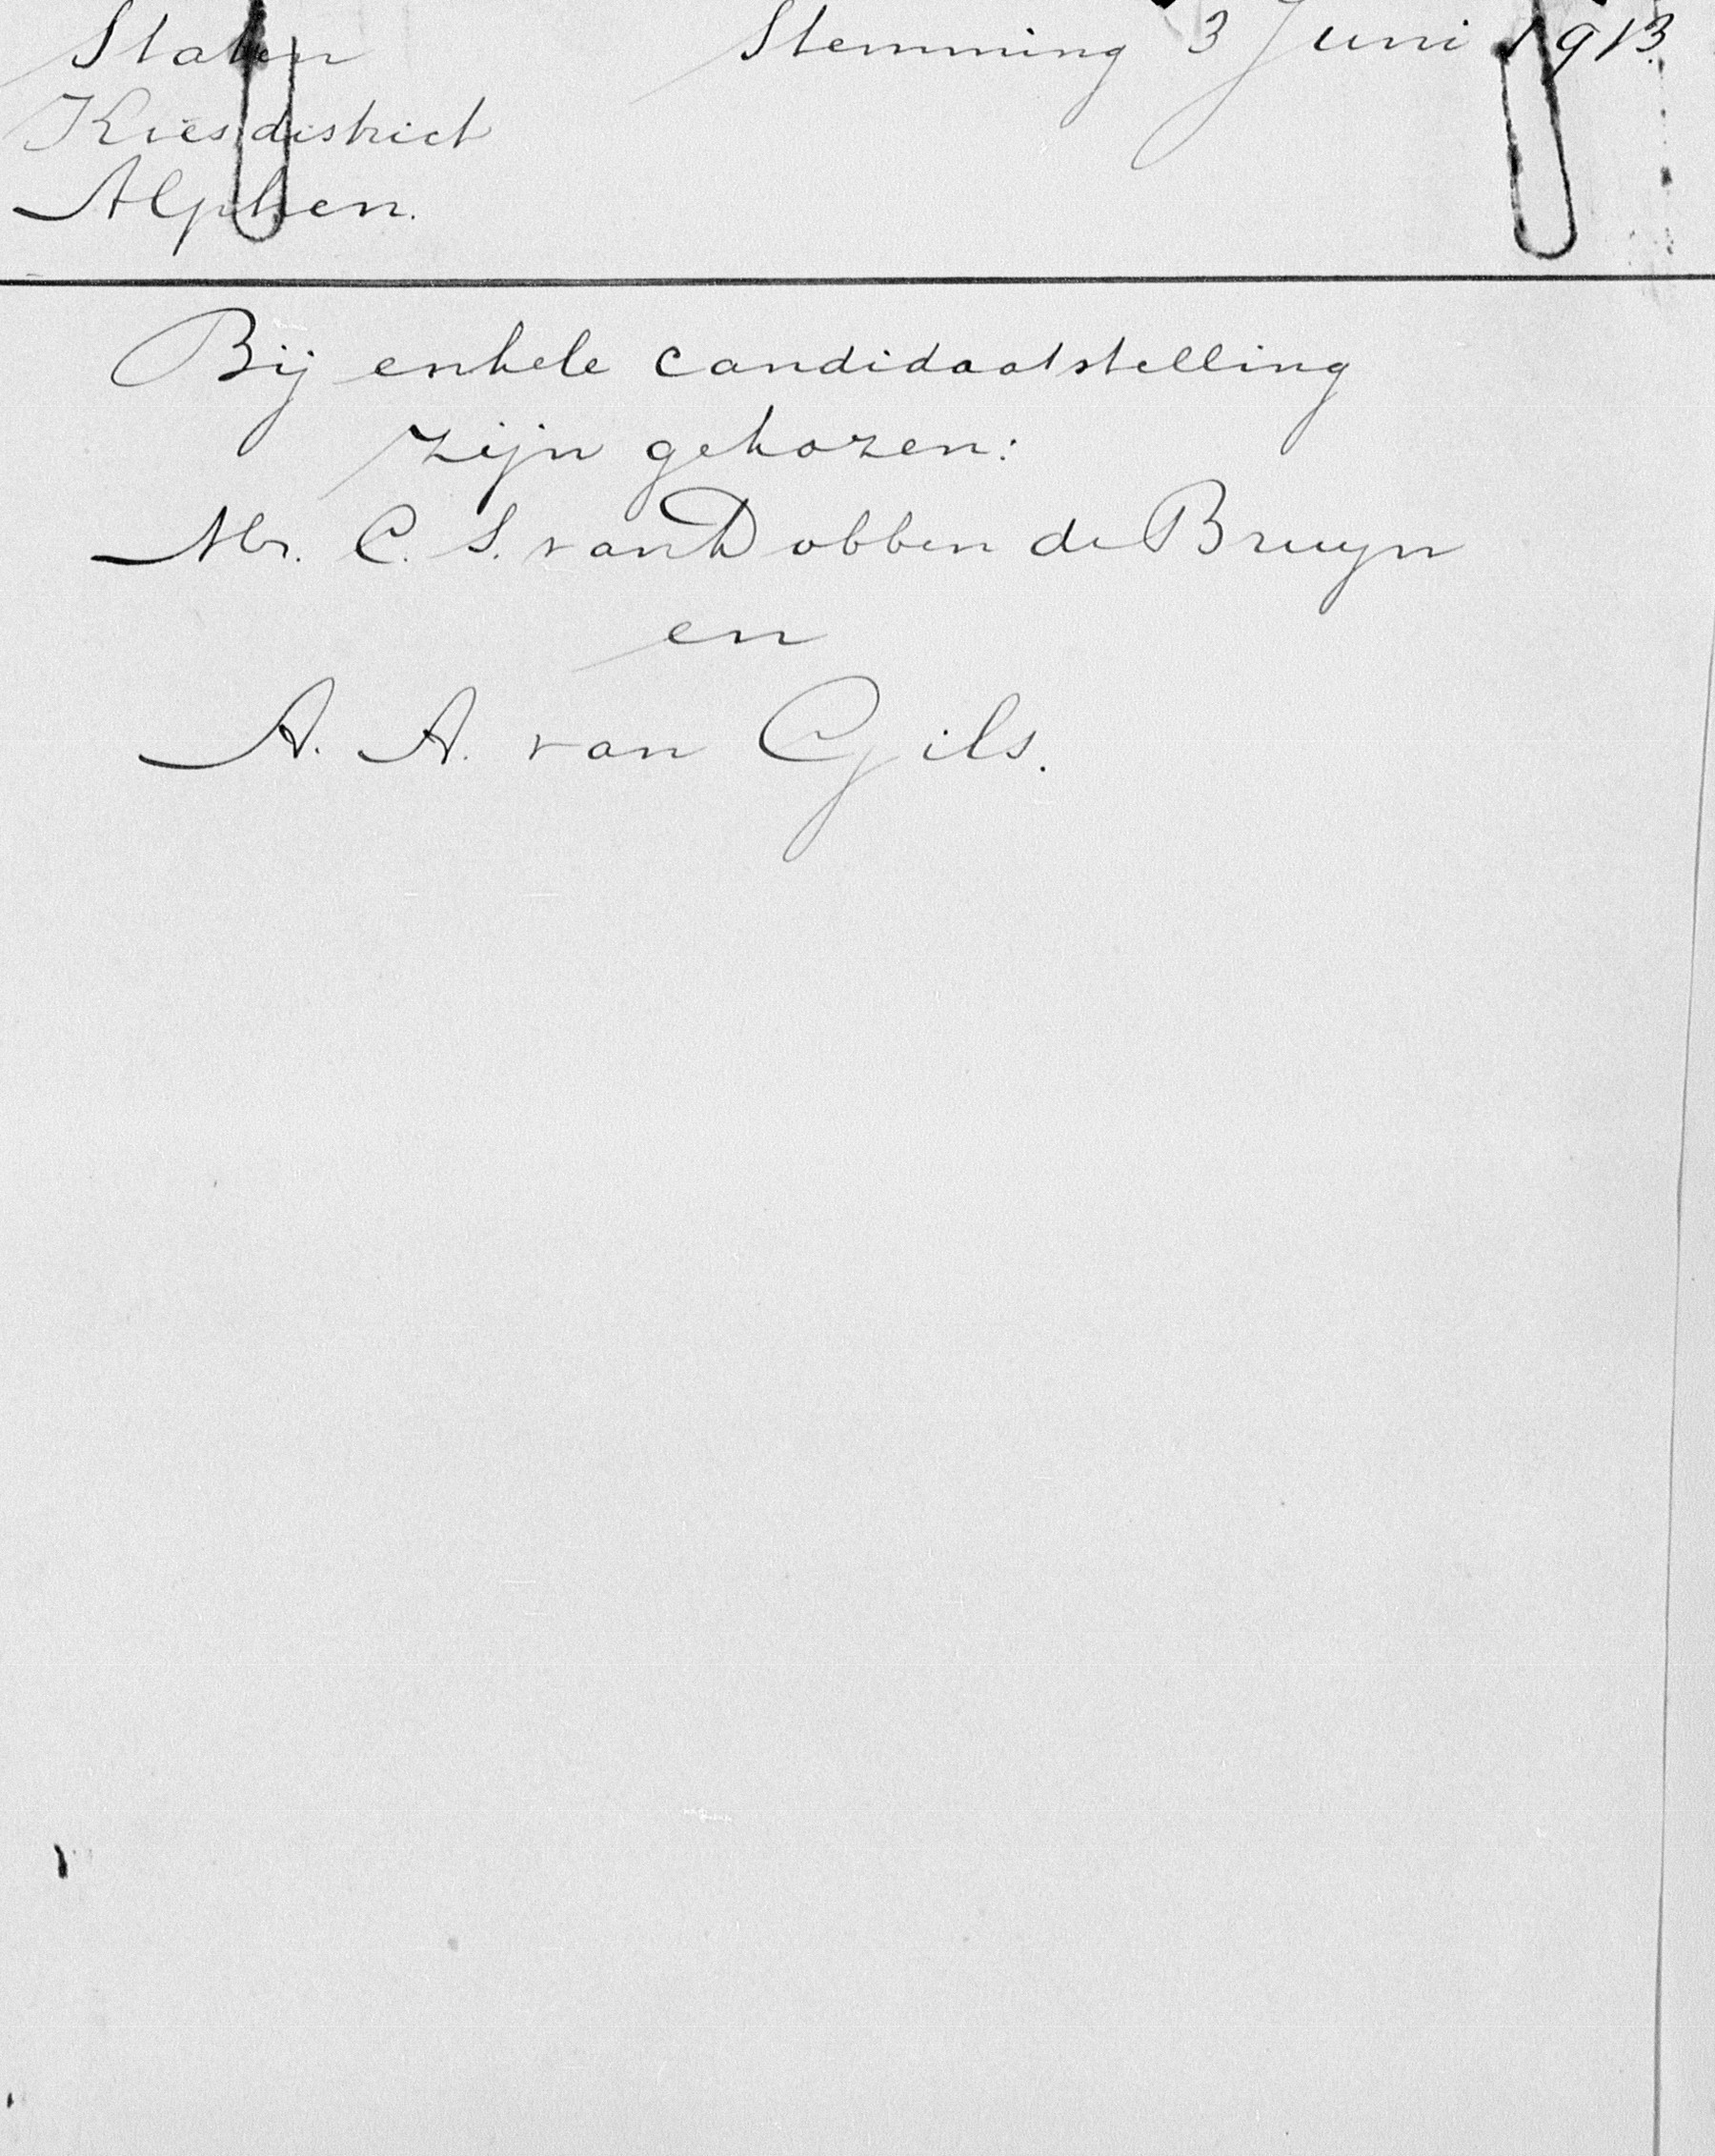 Staten
Kiesdistrict
Alphen.
Stemming 3 Juni 1913.
Bij enkele candidaatstelling
zijn gekozen:
Mr. C. S. van Dobben de Bruyn
en
A. A. van Gils.